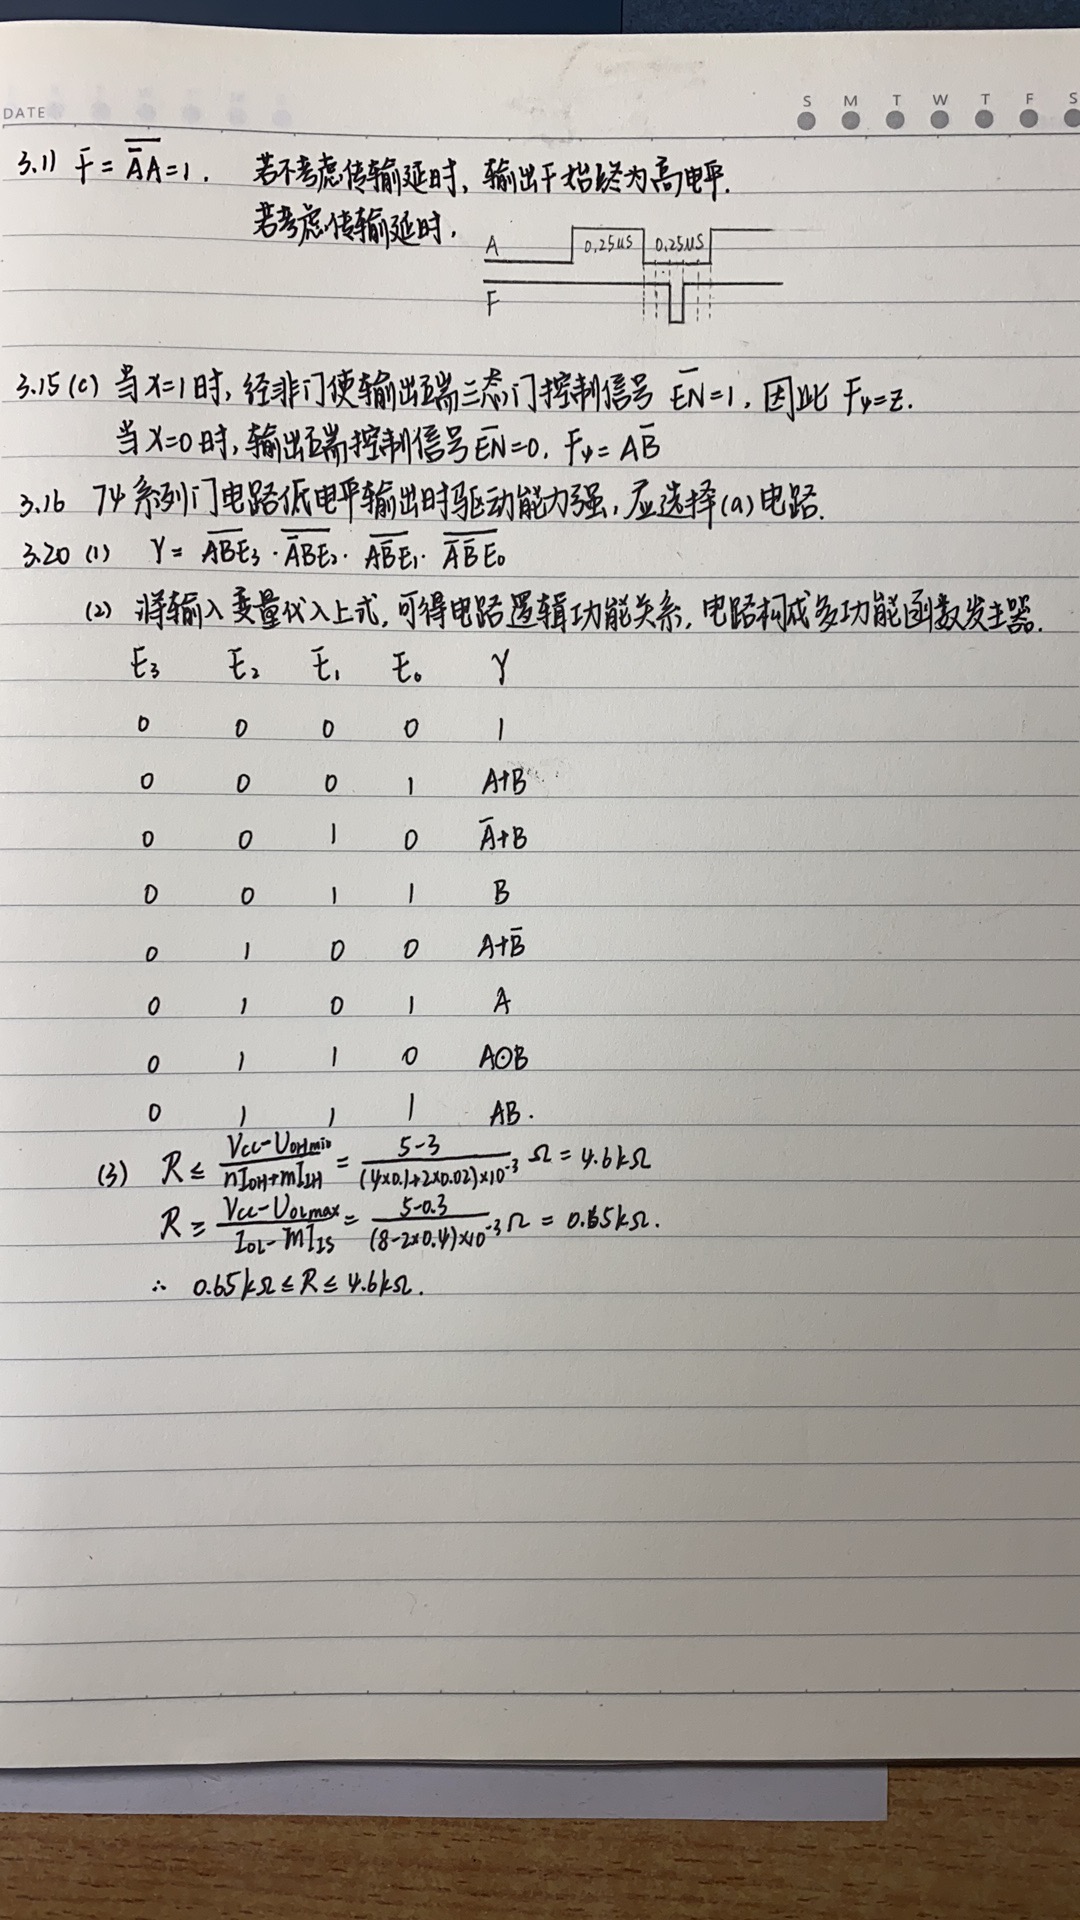 DATE
S M T W T F S
3.11 F = \overline{\overline{A}A}=1. 若不考虑传输延时, 输出F始终为高电平.
若考虑传输延时.
A 0.25μs 0.25μs
F
3.15 (c) 当X=1时, 经非门使输出端三态门控制信号 \overline{EN}=1, 因此 F₄=Z.
当X=0时, 输出端控制信号\overline{EN}=0. F₄=A\overline{B}
3.16 74系列门电路低电平输出时驱动能力强, 应选择(a)电路.
3.20 (1) Y = \overline{ABE₃}·\overline{\overline{A}BE₂}·\overline{A\overline{B}E₁}·\overline{\overline{A}\,\overline{B}E₀}
(2) 将输入变量代入上式, 可得电路逻辑功能关系, 电路构成多功能函数发生器.
E₃ E₂ E₁ E₀ Y
0 0 0 0 1
0 0 0 1 A+B
0 0 1 0 \overline{A}+B
0 0 1 1 B
0 1 0 0 A+\overline{B}
0 1 0 1 A
0 1 1 0 A⊙B
0 1 1 1 AB.
(3) R ≤ \frac{Vcc-UOHmin}{nIOH+mIIH} = \frac{5-3}{(4×0.1+2×0.02)×10⁻³} Ω = 4.6kΩ
R ≥ \frac{Vcc-UOLmax}{IOL-mIIS} = \frac{5-0.3}{(8-2×0.4)×10⁻³} Ω = 0.65kΩ.
∴ 0.65kΩ ≤ R ≤ 4.6kΩ.